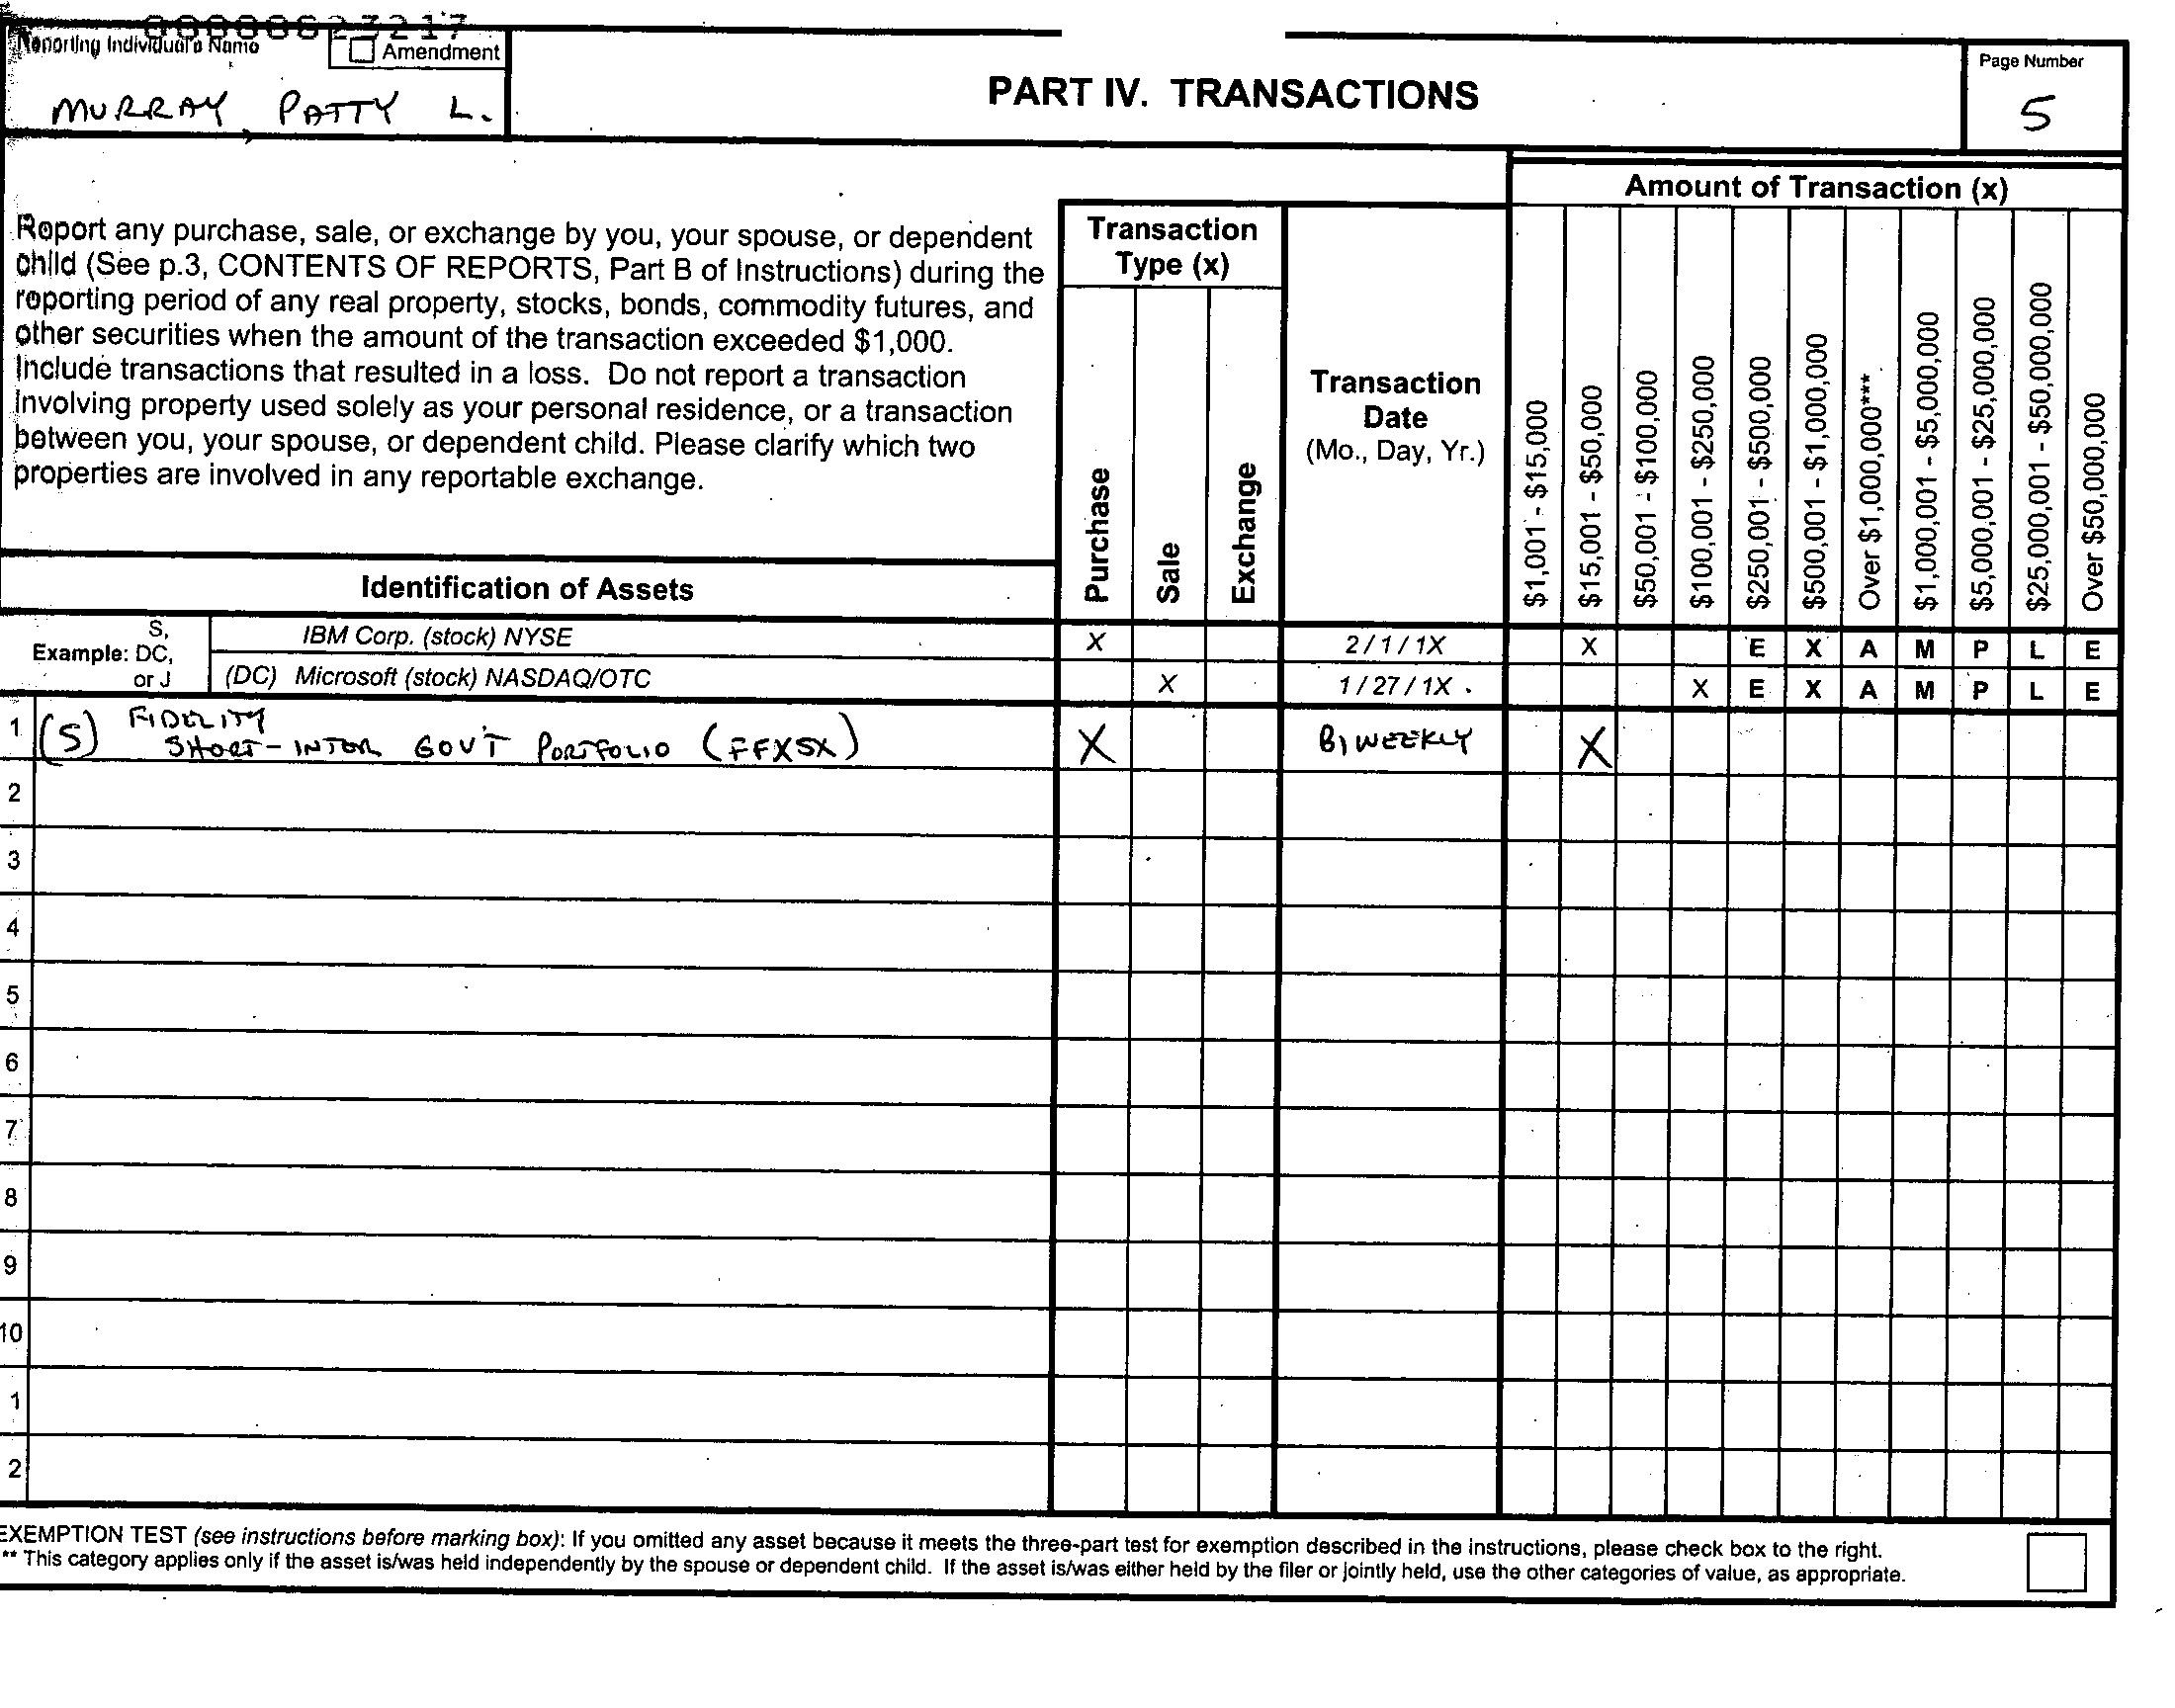 00000623217
Reporting Individual's Name
Amendment
MURRAY PATTY L.
PART IV. TRANSACTIONS
Page Number
5
Report any purchase, sale, or exchange by you, your spouse, or dependent
child (See p.3, CONTENTS OF REPORTS, Part B of Instructions) during the
reporting period of any real property, stocks, bonds, commodity futures, and
other securities when the amount of the transaction exceeded $1,000.
Include transactions that resulted in a loss. Do not report a transaction
involving property used solely as your personal residence, or a transaction
between you, your spouse, or dependent child. Please clarify which two
properties are involved in any reportable exchange.
Identification of Assets
Transaction
Type (x)
Purchase
Sale
Exchange
Transaction
Date
(Mo., Day, Yr.)
Amount of Transaction (x)
$1,001 - $15,000
$15,001 - $50,000
$50,001 - $100,000
$100,001 - $250,000
$250,001 - $500,000
$500,001 - $1,000,000
Over $1,000,000***
$1,000,001 - $5,000,000
$5,000,001 - $25,000,000
$25,000,001 - $50,000,000
Over $50,000,000
Example: S, DC, or J
IBM Corp. (stock) NYSE X 2 / 1 / 1X X E X A M P L E
(DC) Microsoft (stock) NASDAQ/OTC X 1 / 27 / 1X X E X A M P L E
1 (S) FIDELITY
SHORT-INTER GOV'T PORTFOLIO (FFXSX) X BIWEEKLY X
2
3
4
5
6
7
8
9
10
1
2
EXEMPTION TEST (see instructions before marking box): If you omitted any asset because it meets the three-part test for exemption described in the instructions, please check box to the right.
** This category applies only if the asset is/was held independently by the spouse or dependent child. If the asset is/was either held by the filer or jointly held, use the other categories of value, as appropriate.